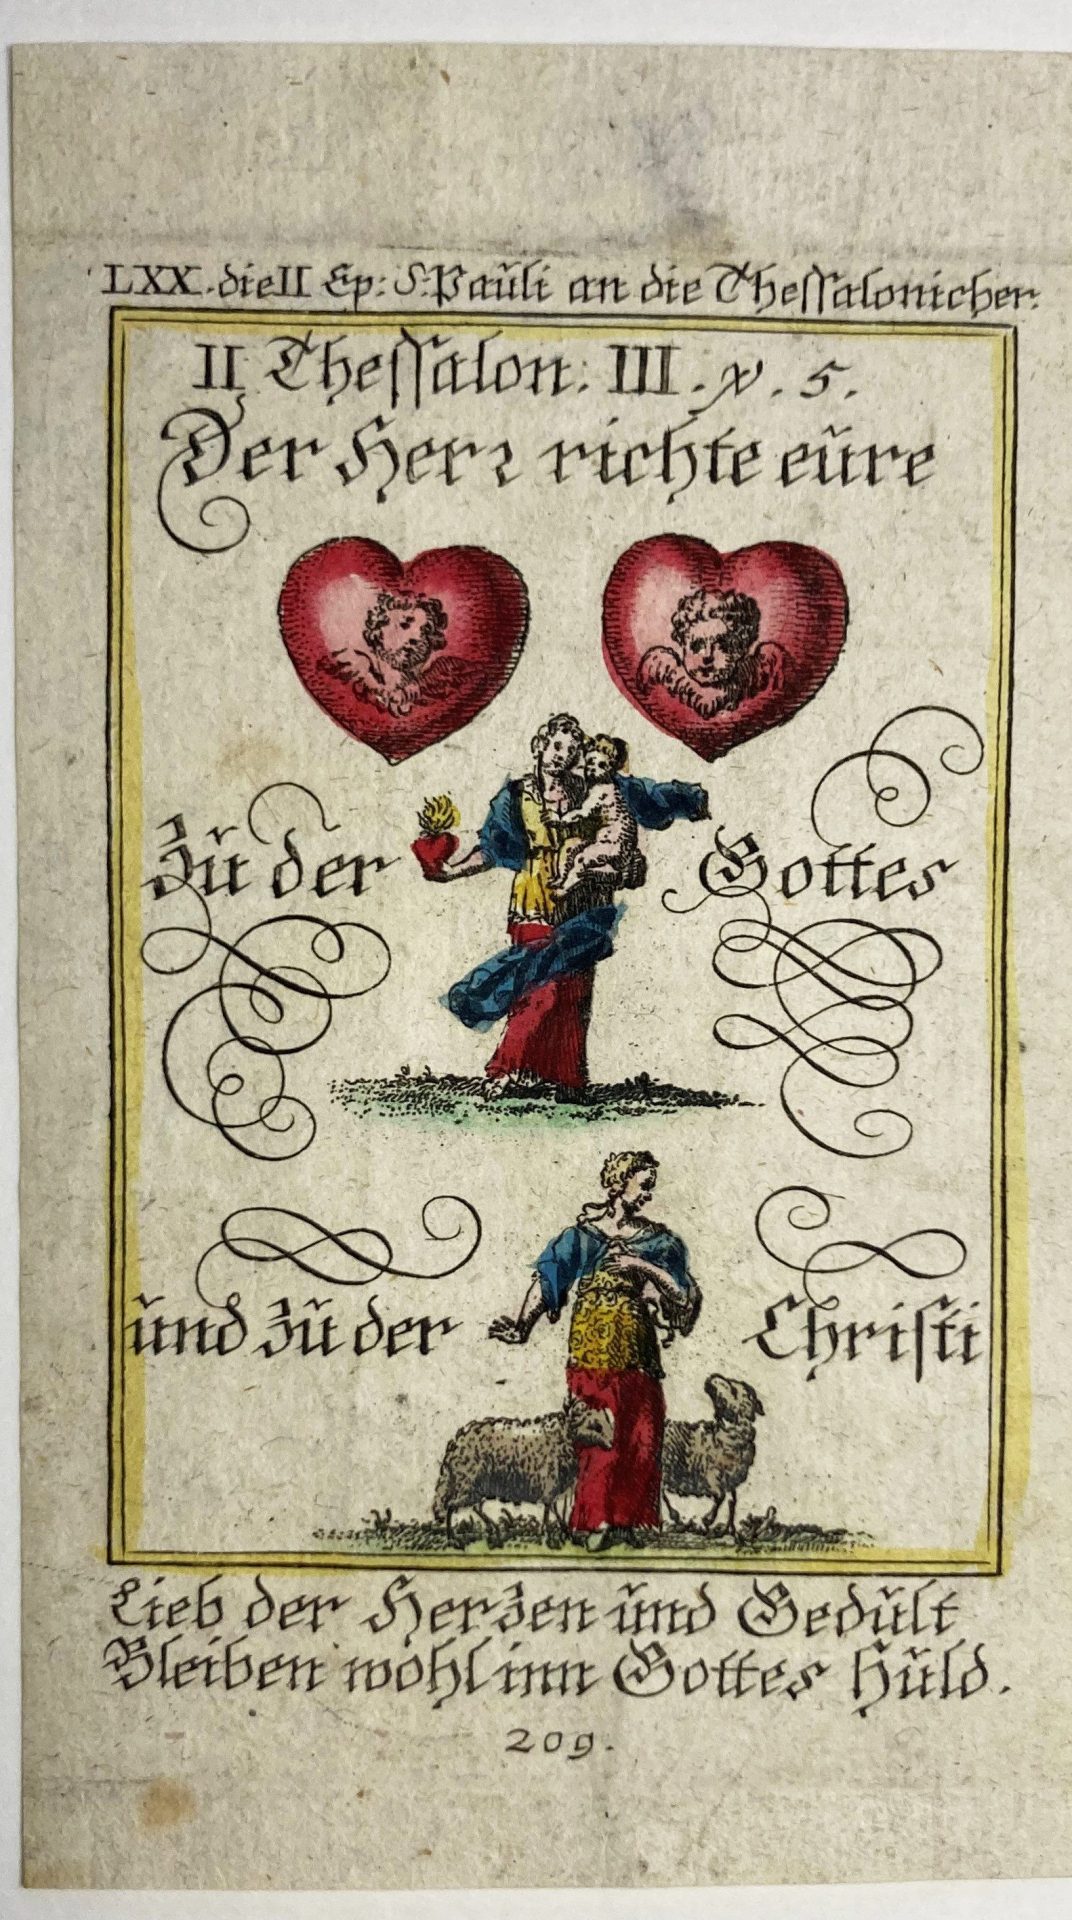 LXX. die II Ep: S. Paŭli an die Thessalonicher.
II Thessalon: III. v. 5.
Der Herr richte eŭre
Zŭ der Gottes
ŭnd zŭ der Christi
Lieb der Herzen ŭnd Gedŭlt
Bleiben wohl inn Gottes Hŭld.
209.